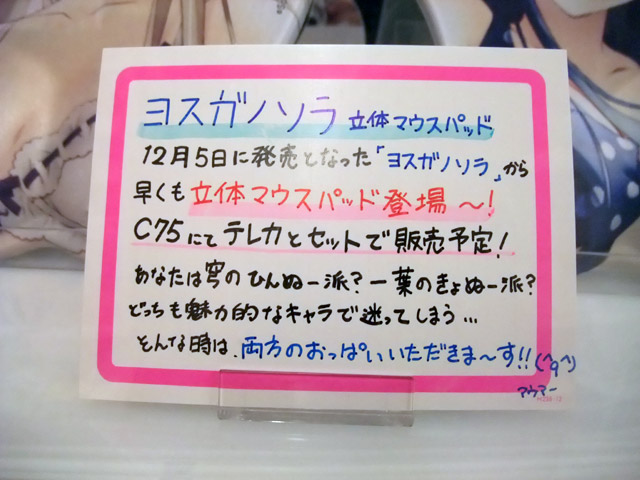 ヨスガノソラ 立体マウスパッド
12月5日に発売となった「ヨスガノソラ」から
早くも立体マウスパッド登場〜!
C75にてテレカとセットで販売予定!
あなたは穹のひんぬー派?一葉のきょぬー派?
どっちも魅力的なキャラで迷ってしまう…
そんな時は、両方のおっぱいいただきま〜す!!(^q^)
マウマー